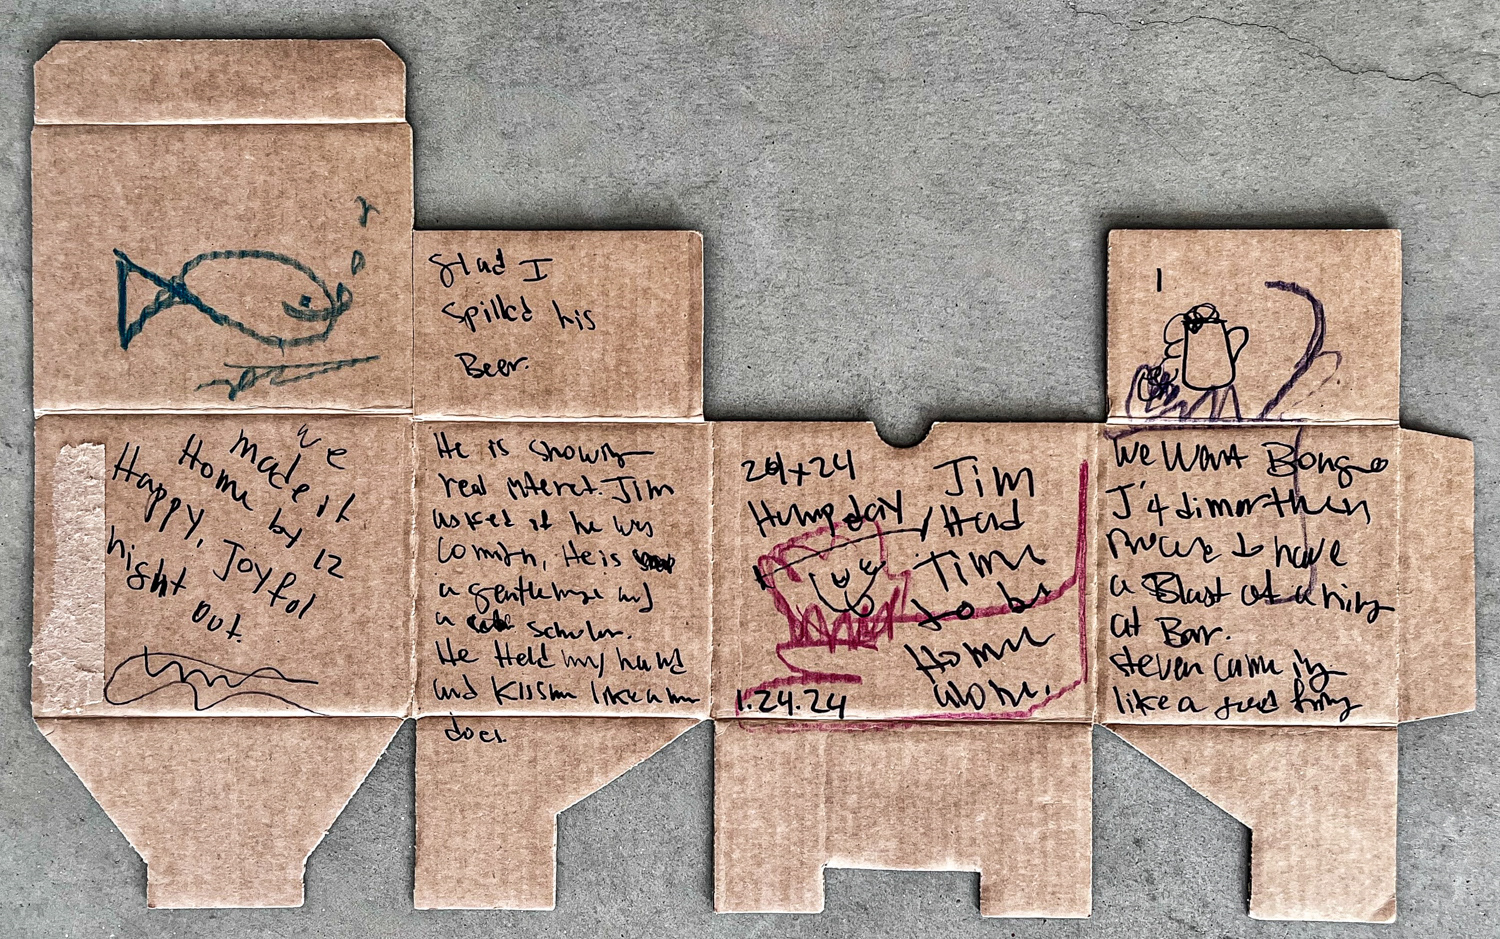 Glad I
spilled his
Beer.
we
made it
Home by 12
Happy, Joyful
night out
He is showing
real interest. Jim
asked if he was
coming, He is
a gentleman and
a scholar.
He Held my hand
and Kissin like a
does.
24
Humpday
1.24.24
Jim
Had
Time
to be
Home
alone.
1
We Want Bongo
J's 4 dinner then
to have
a Blast of a
at Bar.
Steven came
like a good